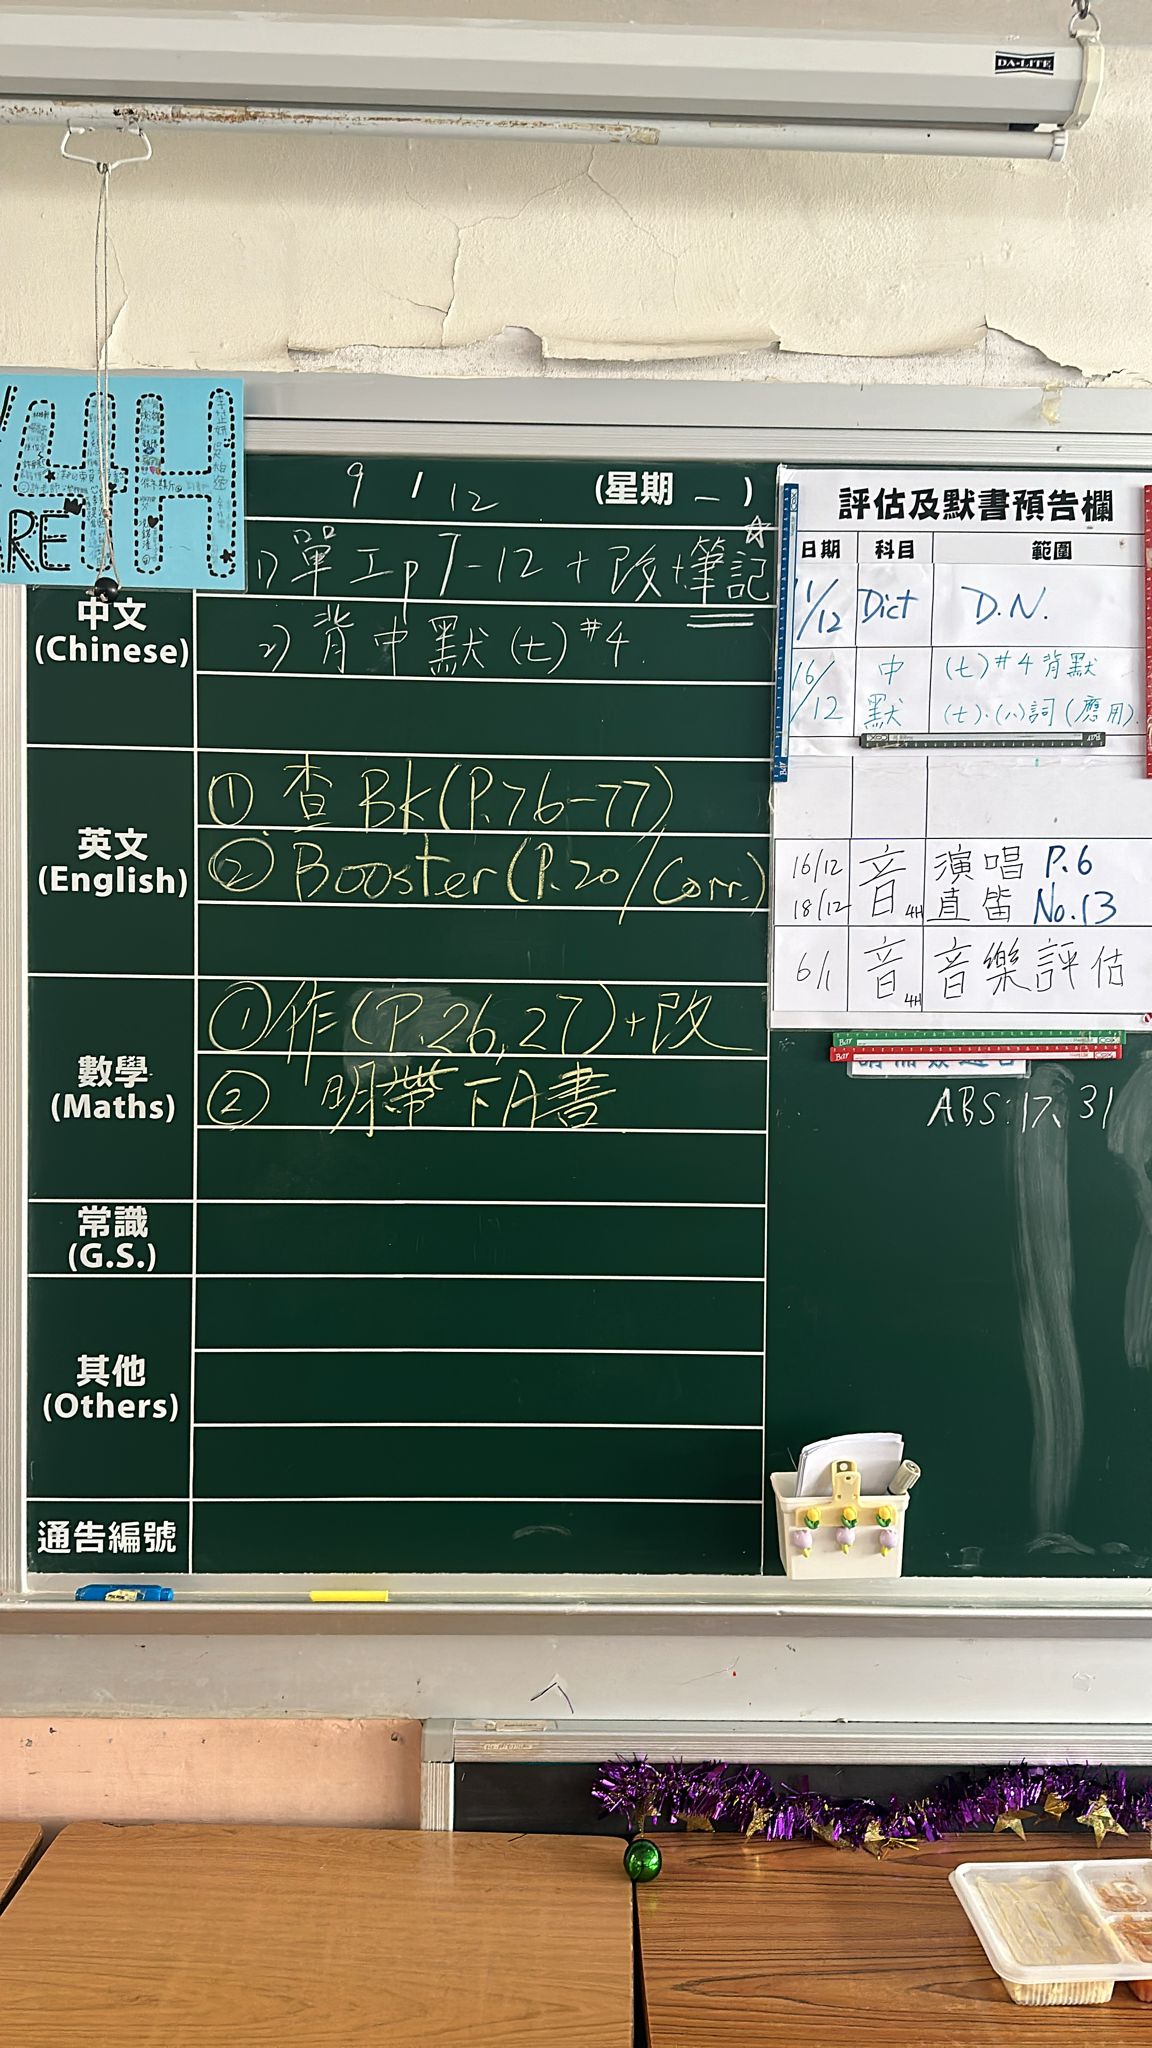 DA-LITE
9 / 12 (星期 一 )
中文
(Chinese)
1) 單工p7-12 + 改+筆記
2) 背中默(七)#4
英文
(English)
① 查 Bk(P.76-77)
② Booster(P.20/Corr.)
數學
(Maths)
①作(P.26,27)+改
② 明帶下A書
常識
(G.S.)
其他
(Others)
通告編號
評估及默書預告欄
日期 科目 範圍
11/12 Dict D.N.
16/12 中默 (七)#4背默
(七).(八)詞(應用).
16/12 音 4H 演唱 P.6
18/12 直笛 No.13
6/1 音 4H 音樂評估
ABS:17、31